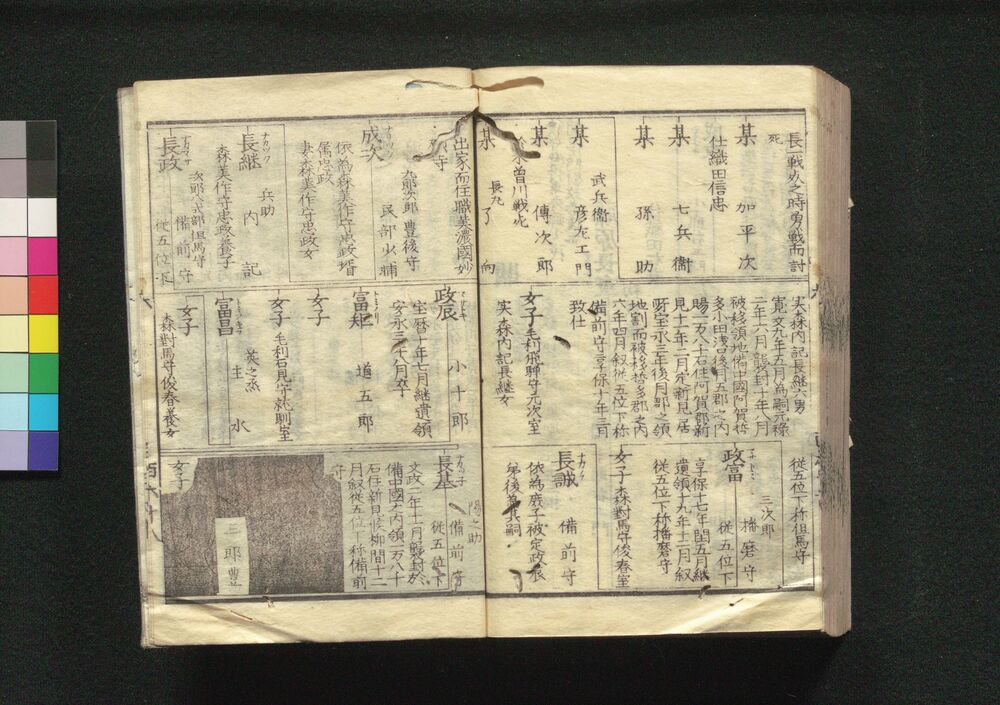 長一戦久之時勇戦而討
死
某 加平次
仕織田信忠
某 七兵衞
某 孫助
某 彦左工門
武兵衞
某 傳次郎
木曽川戦死
某 了向
長九
出家而住職美濃國妙
守
成次 民部少輔
ナリツク
九郎次郎 豊後守
依為森美作守忠政婿
属忠政
妻森美作守忠政女
長継 内記
ナカツク
兵助
森美作守忠政養子
長政 備前守
ナカマサ
次郎 式部 但馬守
従五位下
実森内記長継六男
寛文九年十五月為嗣元禄
二年六月襲封十年八月
被移領地備中國阿賀哲
多小田浅口後月五郡之内
賜一万八千石住阿賀郡新
見十一年二月定新見居
所宝永三年後月郡之領
地割而被移哲多郡之内
六年四月叙従五位下称
備前守享保十年三月
致仕
女子 毛利飛騨守元次室
実森内記長継女
政辰 小十郎
宝暦十年七月継遺領
安永三年八月卒
富矩 道五郎
トミノリ
女子
女子 毛利石見守就馴室
富昌 主水
英之烝
女子
森對馬守俊春養女
従五位下称但馬守
政富 播磨守
三次郎
従五位下
享保十七年閏五月継
遺領十九年十二月叙
従五位下称播磨守
女子 森對馬守俊春室
長誠 備前守
ナカノフ
依為庶子被定政辰
卒後為其嗣
長基 備前守
陽之助
従五位下
文政二年十一月襲封於
備中國之内領一万八千
石住新見候柳間十二
月叙従五位下称備前
守
女子
三郎豊